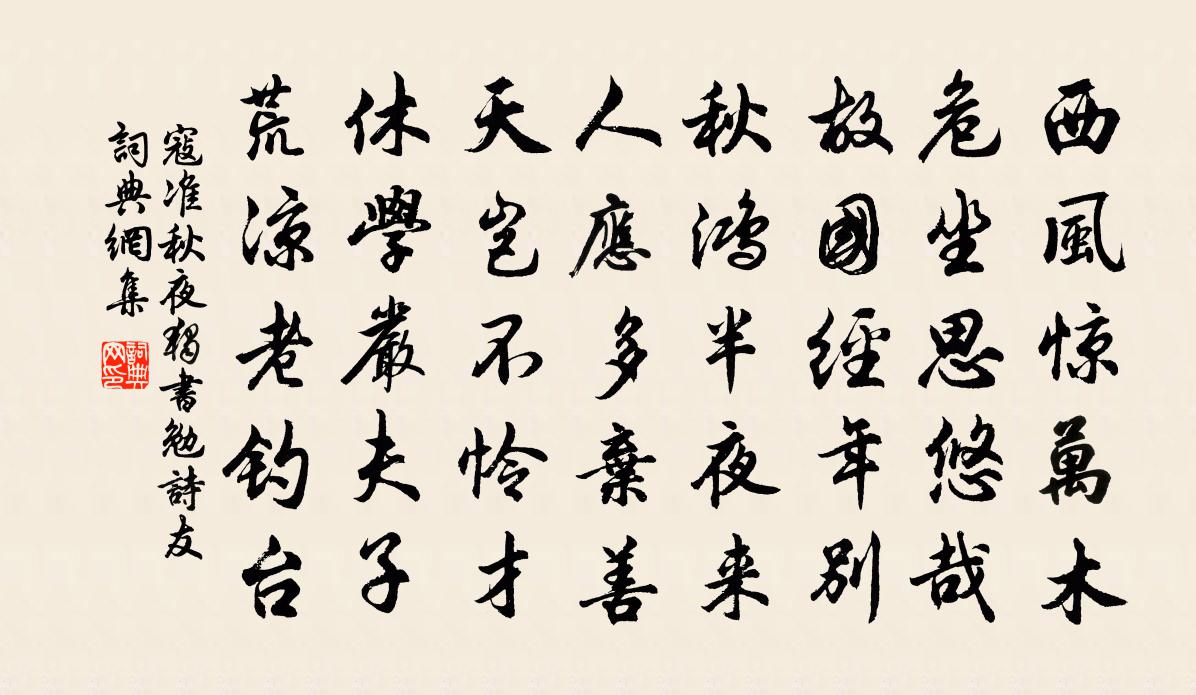 西風惊萬木
危坐思悠哉
故國經年别
秋鴻半夜来
人應多棄善
天豈不怜才
休學嚴夫子
荒凉老钓台
寇准秋夜獨書勉詩友
詞典網集
詞典网印